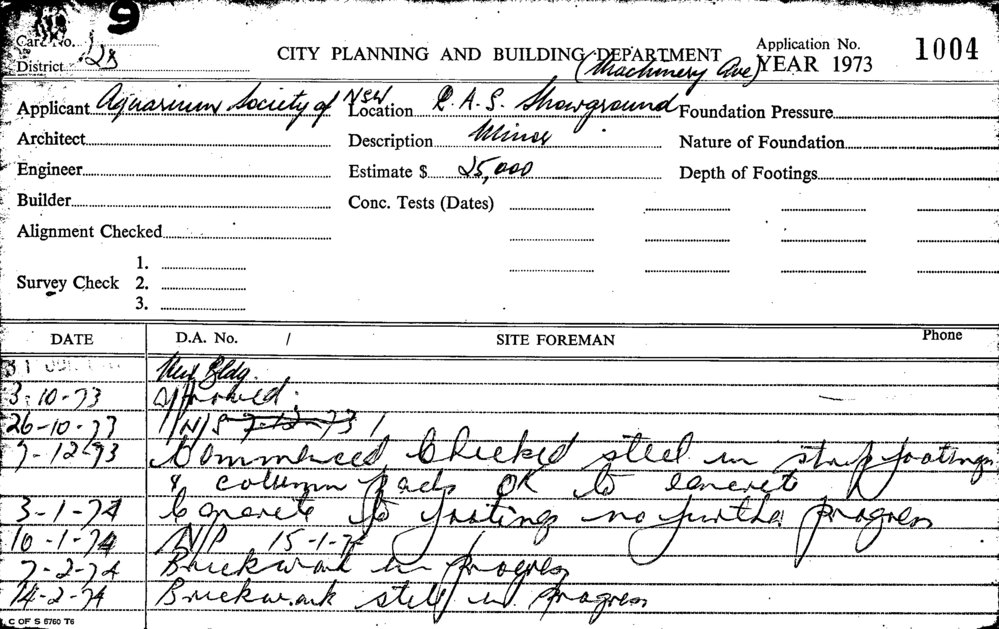 9
Card No.
District 2B
CITY PLANNING AND BUILDING DEPARTMENT
Application No. 1004
YEAR 1973
(Machinery Ave)
Applicant Aquarium Society of NSW Location R.A.S. Showground Foundation Pressure
Architect Description Minor Nature of Foundation
Engineer Estimate $ 25,000 Depth of Footings
Builder Conc. Tests (Dates)
Alignment Checked
Survey Check 1.
2.
3.
DATE D.A. No. / SITE FOREMAN Phone
31 New Bldg.
3-10-73 Approved.
26-10-73 N/S 7-12-73
7-12-73 Commenced Checked steel in strip footings
& column pads OK to concrete
3-1-74 Concrete to footings no further progress
10-1-74 N/P 15-1-74
7-2-74 Brickwork in progress
14-2-74 Brickwork still in progress
C OF S 5760 T6